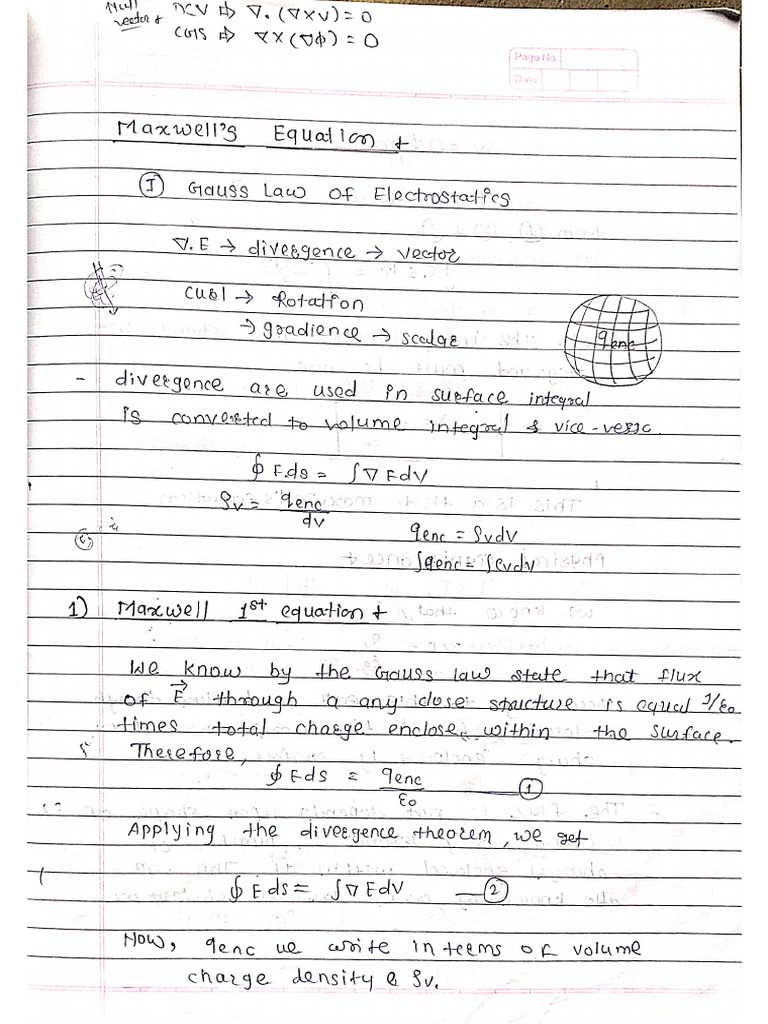 Null xcv ⇒ ∇. (∇×V) = 0
vector + CGIS ⇒ ∇×(∇φ) = 0
Page No.
Date
Maxwell's Equation +
(I) Gauss Law OF Electrostatics
∇.E → divergence → vector
curl → Rotation
→ gradience → scalar
qenc
- divergence are used in surface integral
is converted to volume integral & vice-versa.
∮ E.ds = ∫∇ Edv
ρv = qenc/dv
qenc = ρvdv
∫qenc = ∫ρvdv
1) Maxwell 1st equation +
We know by the Gauss law state that flux
of E⃗ through a any close structure is equal 1/ε0
times total charge enclose within the surface.
Therefore,
∮ Eds = qenc/ε0 —(1)
Applying the divergence theorem, we get
∮ E ds = ∫∇ Edv —(2)
Now, qenc we write in terms of volume
charge density e ρv.